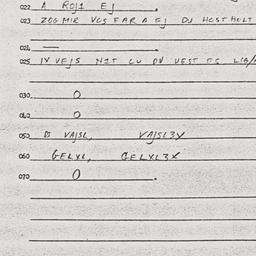 022 A ROJ1 EJ .
023 ZOG MIR VOS FAR A EJ DU HOST HOLT
024 — .
025 IX VEJS NIT CU DU VEST ES LIB/
030. 0
040. 0
050 VAJSL, VAJSL3X
060 GELXL, GELXL3X
070 0 .